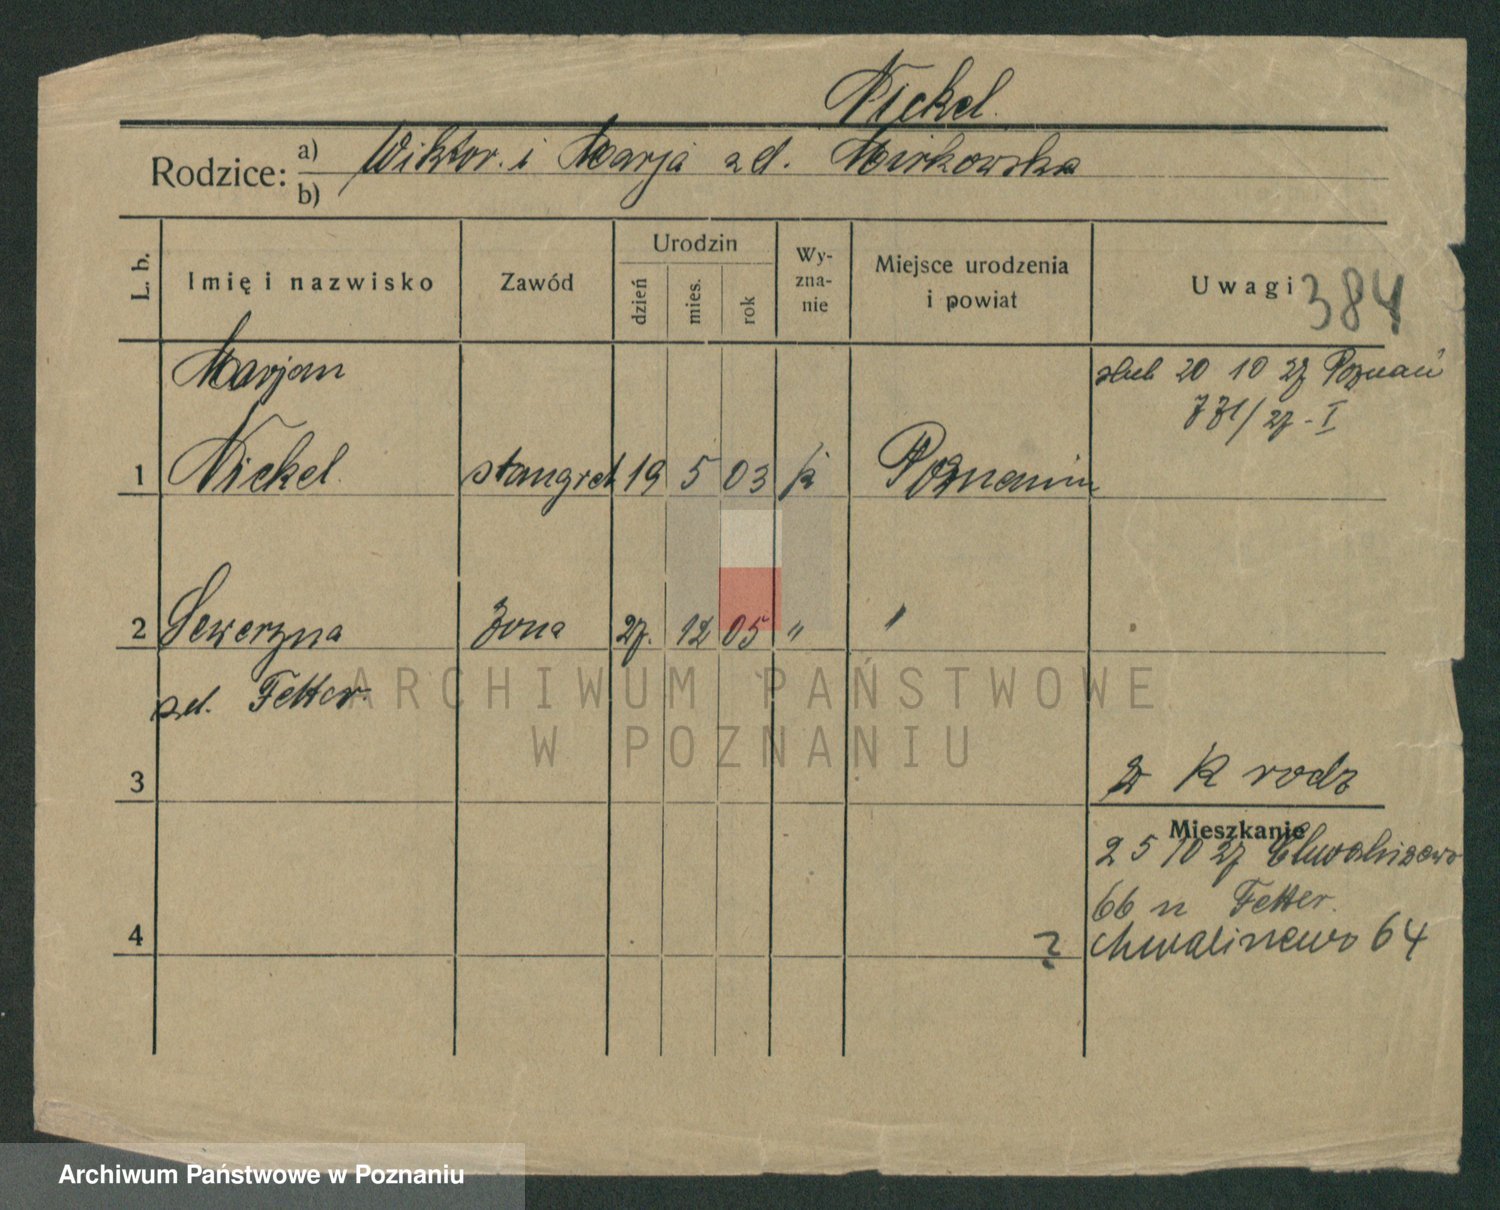 Nickel.
Rodzice: a) Wiktor. i Marja zd. Mirkowska
b)
L. b.
Imię i nazwisko
Zawód
Urodzin
dzień
mies.
rok
Wy-
zna-
nie
Miejsce urodzenia
i powiat
Uwagi 384
Marjan
ślub 20 10 27 Poznań
771/27 - I
1 Nickel. stangret 19 5 03 k Poznaniu
2 Seweryna żona 27. 12 05 " "
zd. Fetter.
ARCHIWUM PAŃSTWOWE
W POZNANIU
K rodz
3
Mieszkanie
25 10 27 Chwaliszewo
66 u Fetter.
4 ? Chwaliszewo 64
Archiwum Państwowe w Poznaniu